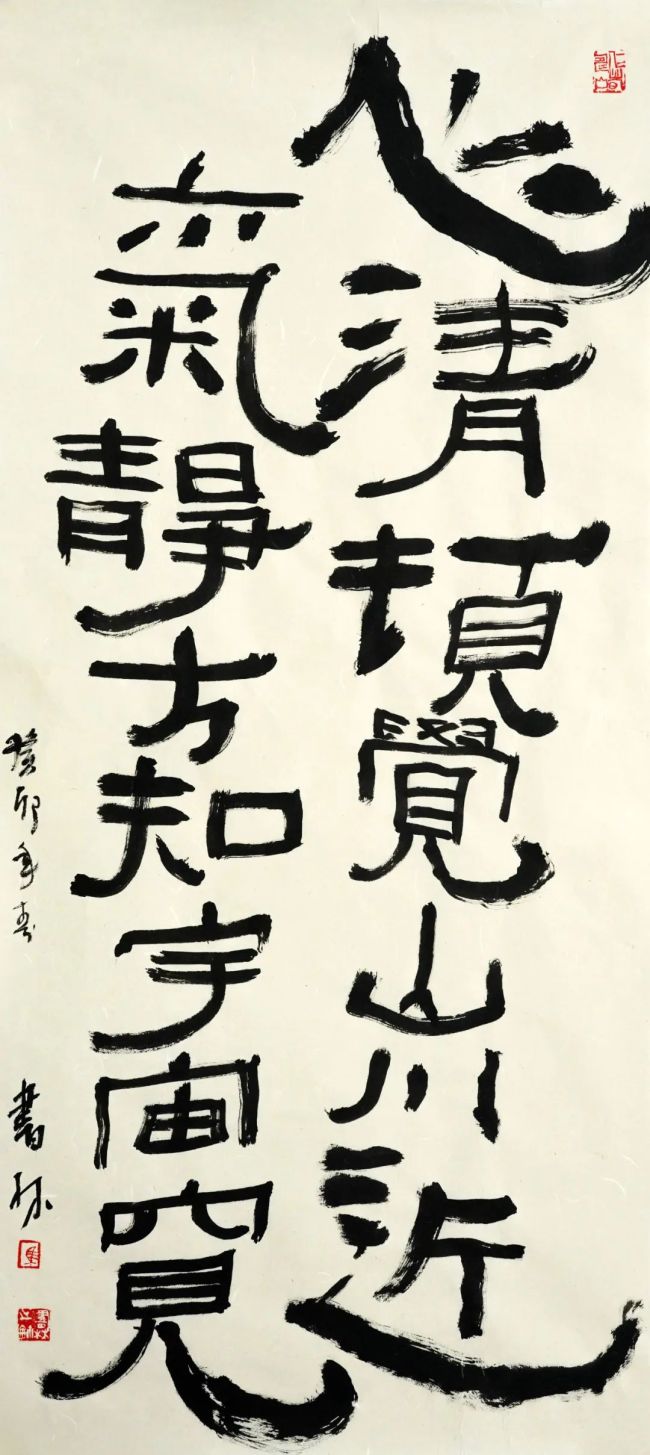 心清頓覺山川近
氣靜方知宇宙寬
癸卯年春 書林